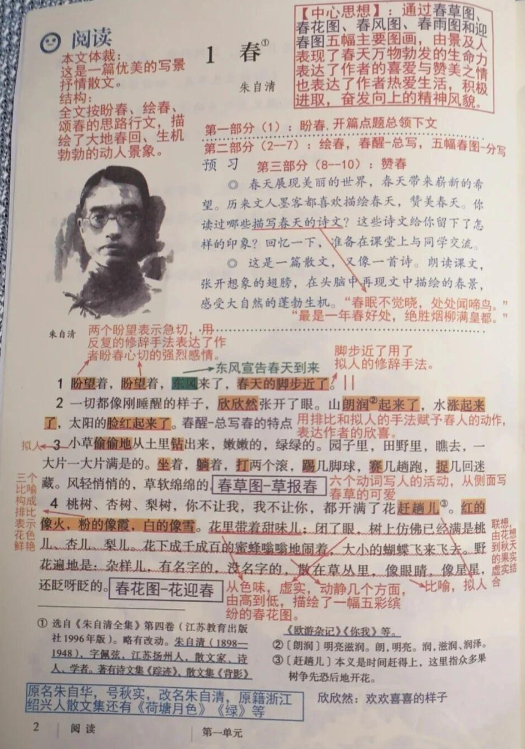 阅读
本文体裁：
这是一篇优美的写景
抒情散文。
结构：
全文按盼春、绘春、
颂春的思路行文，描
绘了大地春回、生机
勃勃的动人景象。
1 春①
朱自清
【中心思想】：通过春草图、
春花图、春风图、春雨图和迎
春图五幅主要图画，由景及人
表现了春天万物勃发的生命力
表达了作者的喜爱与赞美之情
也表达了作者热爱生活，积极
进取，奋发向上的精神风貌。
第一部分（1）：盼春.开篇点题总领下文
第二部分（2—7）：绘春，春醒-总写，五幅春图-分写
预 习 第三部分（8—10）：赞春
◎ 春天展现美丽的世界，春天带来崭新的希
望。历来文人墨客都喜欢描绘春天，赞美春天。你
读过哪些描写春天的诗文？这些诗文给你留下了怎
样的印象？回忆一下，准备在课堂上与同学交流。
◎ 这是一篇散文，又像一首诗。朗读课文，
张开想象的翅膀，在头脑中再现文中描绘的春景，
感受大自然的蓬勃生机。“春眠不觉晓，处处闻啼鸟。”
“最是一年春好处，绝胜烟柳满皇都。”
朱自清
两个盼望表示急切，用
反复的修辞手法表达了作
者盼春心切的强烈感情。
东风宣告春天到来
脚步近了用了
拟人的修辞手法。
1 盼望着，盼望着，东风来了，春天的脚步近了。
2 一切都像刚睡醒的样子，欣欣然张开了眼。山朗润②起来了，水涨起来
了，太阳的脸红起来了。春醒-总写春的特点
用排比和拟人的手法赋予春人的动作，
表达作者的欣喜。
拟人
3 小草偷偷地从土里钻出来，嫩嫩的，绿绿的。园子里，田野里，瞧去，一
大片一大片满是的。坐着，躺着，打两个滚，踢几脚球，赛几趟跑，捉几回迷
藏。风轻悄悄的，草软绵绵的。春草图-草报春
六个动词写人的活动，从侧面写
春草的可爱
4 桃树、杏树、梨树，你不让我，我不让你，都开满了花赶趟儿③。红的
像火，粉的像霞，白的像雪。花里带着甜味儿；闭了眼，树上仿佛已经满是桃
儿、杏儿、梨儿。花下成千成百的蜜蜂嗡嗡地闹着，大小的蝴蝶飞来飞去。野
花遍地是：杂样儿，有名字的，没名字的，散在草丛里，像眼睛，像星星，
还眨呀眨的。春花图-花迎春
从色味，虚实，动静几个方面，
由高到低，描绘了一幅五彩缤
纷的春花图。
比喻，拟人
① 选自《朱自清全集》第四卷（江苏教育出版
社1996年版）。略有改动。朱自清（1898—
1948），字佩弦，江苏扬州人，散文家、诗
人、学者。著有诗文集《踪迹》，散文集《背影》
《欧游杂记》《你我》等。
② 〔朗润〕明亮滋润。朗，明亮。润，滋润、润泽。
③ 〔赶趟儿〕本文是时间赶得上，这里指众多果
树争先恐后地开花。
原名朱自华，号秋实，改名朱自清，原籍浙江
绍兴人散文集还有《荷塘月色》《绿》等
欣欣然：欢欢喜喜的样子
2 阅 读 第一单元